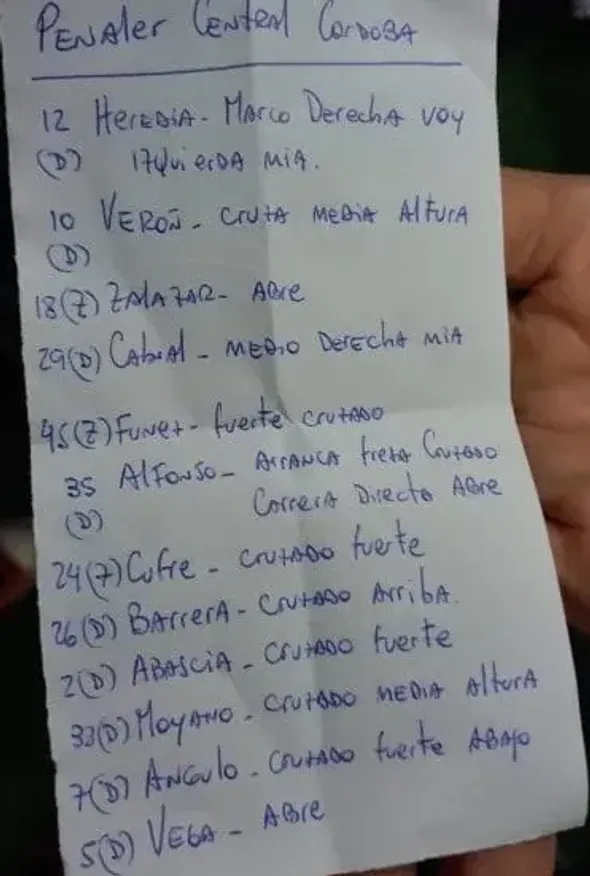 PENALES CENTRAL CORDOBA
12 HEREDIA - MARCO DERECHA VOY
(D) IZQUIERDA MIA.
10 VERON - CRUZA MEDIA ALTURA
(D)
18(Z) ZALAZAR - ABRE
29(D) CABRAL - MEDIO DERECHA MIA
45(Z) FUNEZ - FUERTE CRUZADO
35 ALFONSO - ARRANCA FRENA CRUZADO
(D) CARRERA DIRECTA ABRE
24(Z) CUFRE - CRUZADO FUERTE
26(D) BARRERA - CRUZADO ARRIBA.
2(D) ABASCIA - CRUZADO FUERTE
33(D) MOYANO - CRUZADO MEDIA ALTURA
7(D) ANGULO - CRUZADO FUERTE ABAJO
5(D) VEGA - ABRE